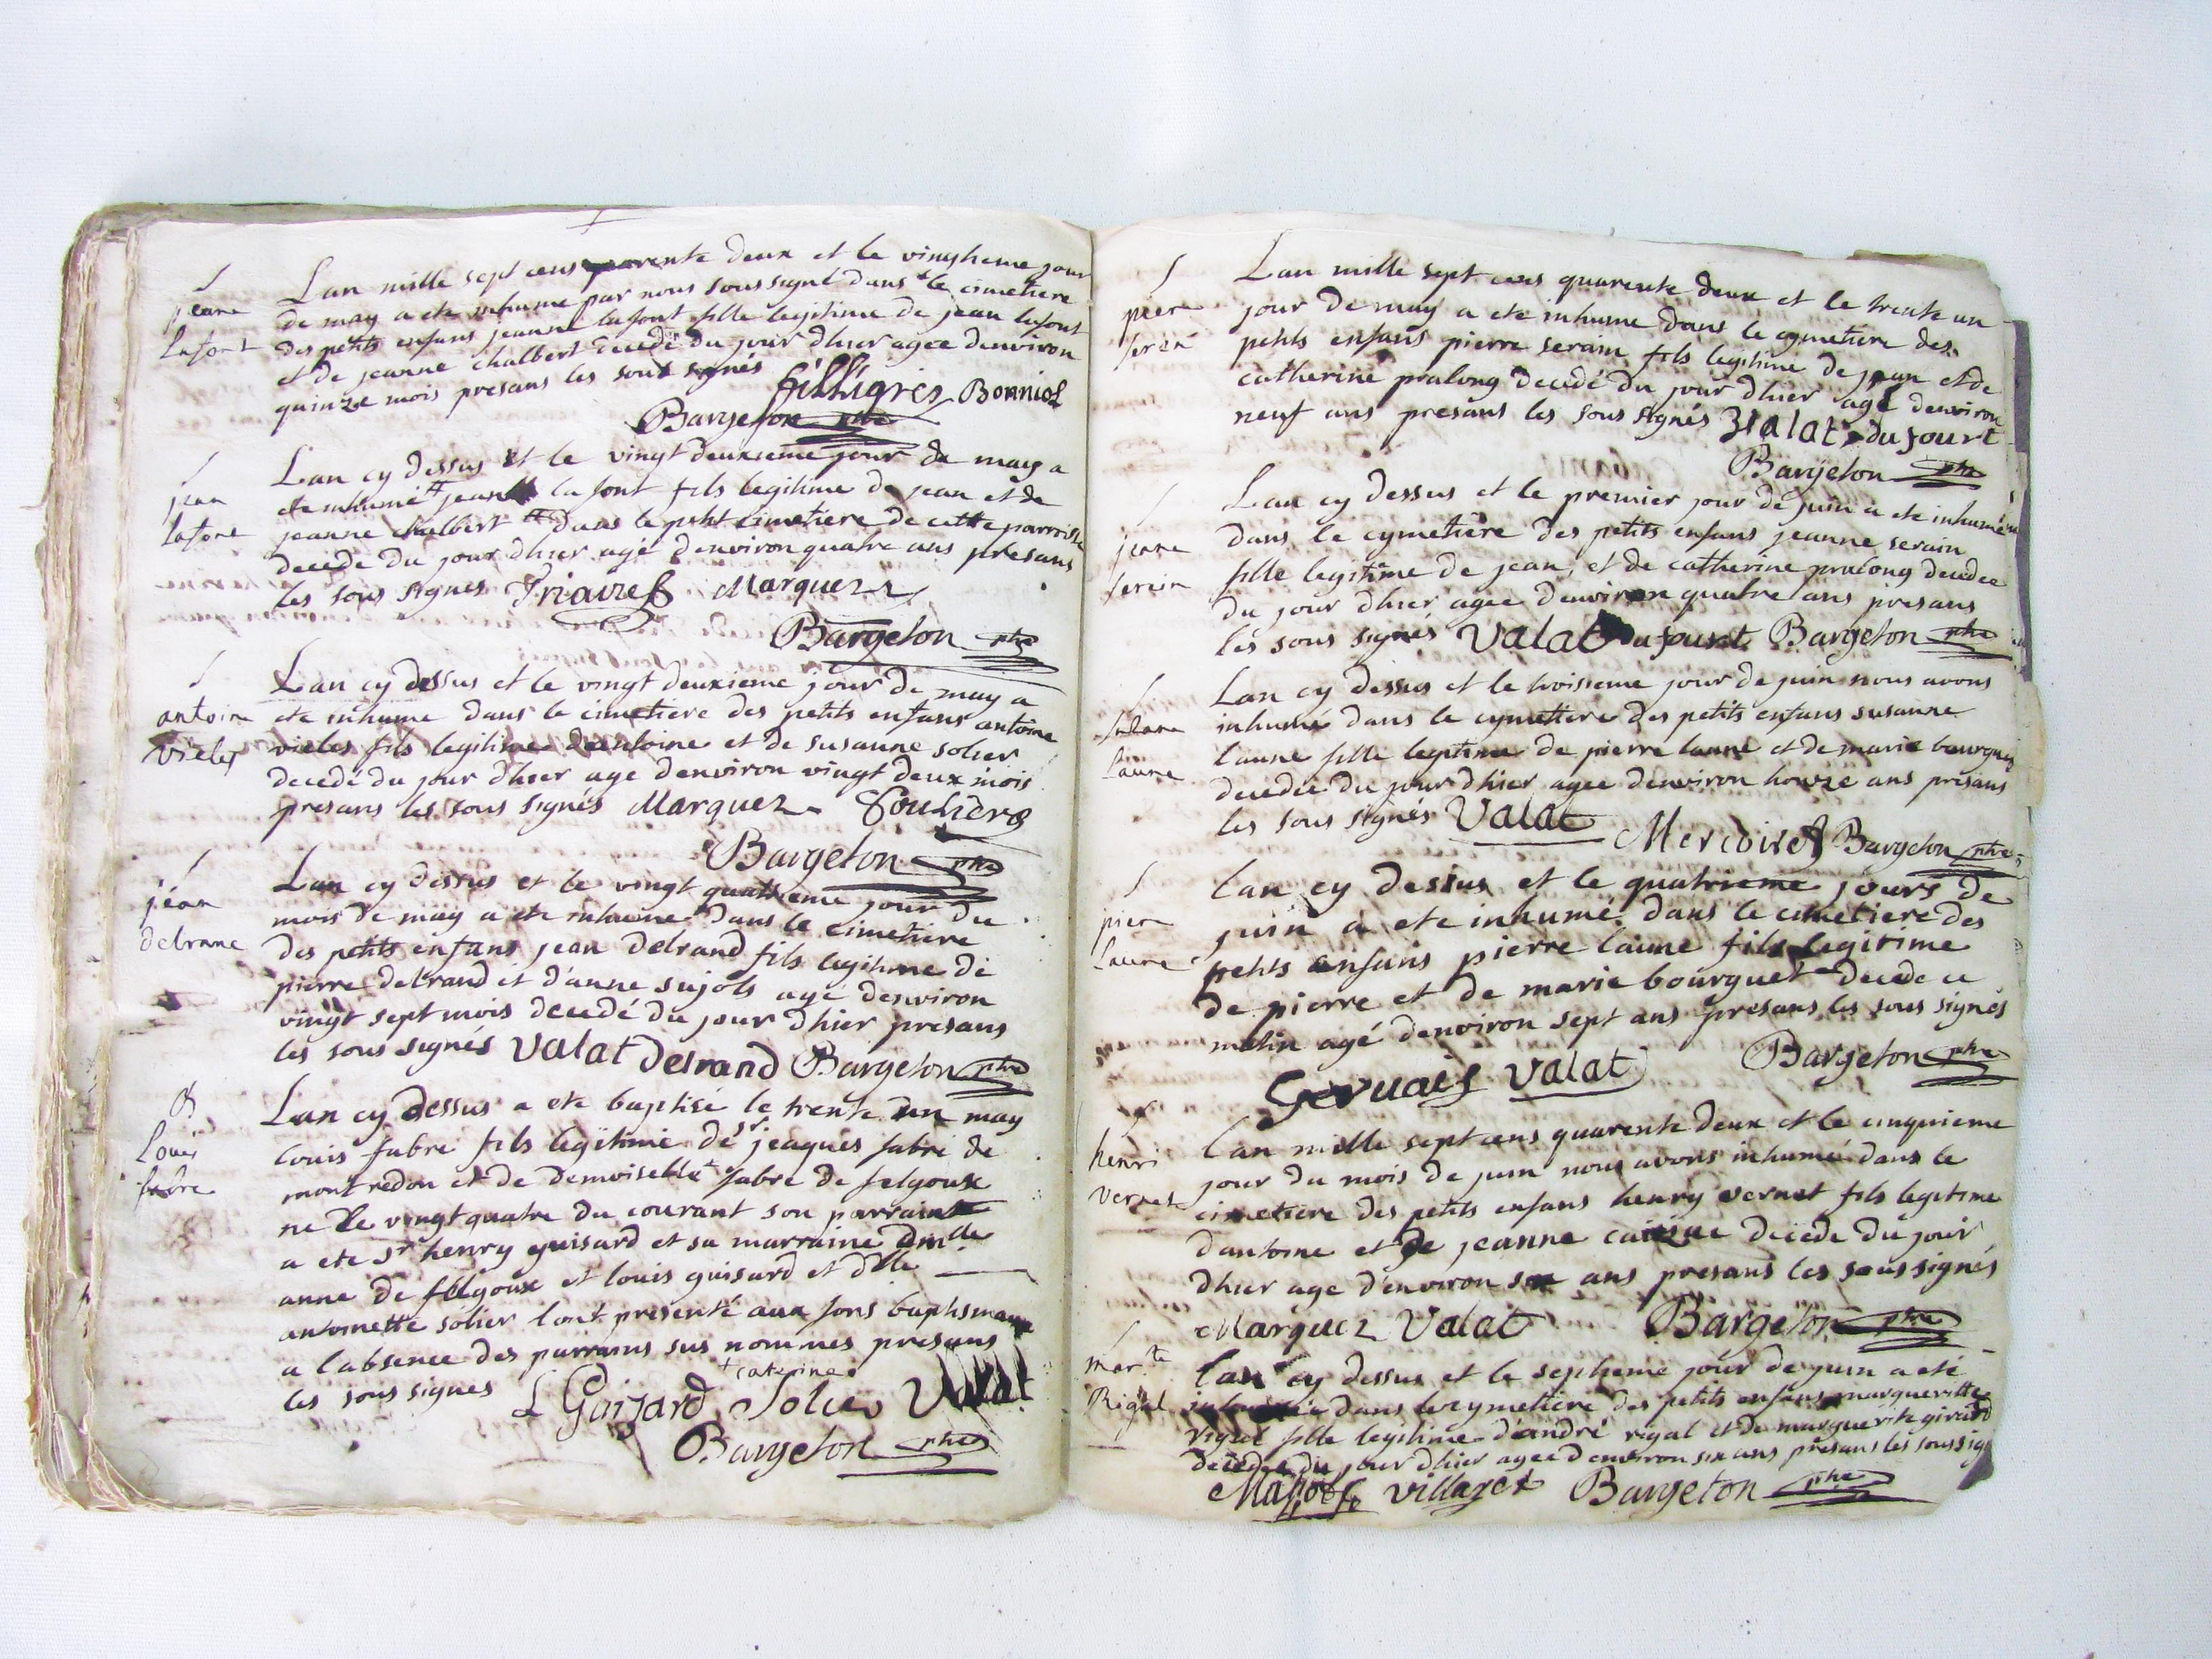 Lan mille sept cens quarente deux et le vingtieme jour
de may a ete inhume par nous soussigné dans le cimetiere
des petits enfans jeanne lafont fille legitime de jean lafont
et de jeanne chalbert decedé du jour dhier agee denviron
quinze mois presans les sous signés filligres Bonniol
Bargeton ptre
jeane
lafont
Lan cy dessus et le vingt deuxieme jour de may a
ete inhumé jean lafont fils legitime de jean et de
jeanne chalbert dans le petit cimetiere de cette parroisse
decede du jour dhier agé denviron quatre ans presans
les sous signes Marquez
Bargeton ptre
jean
lafont
Lan cy dessus et le vingt deuxieme jour de may a
ete inhume dans le cimetiere des petits enfans antoine
vieles fils legitime dantoine et de susanne solier
decedé du jour dhier age denviron vingt deux mois
presans les sous signés Marquez Soulier
Bargeton ptre
antoine
vieles
Lan cy dessus et le vingt quatrieme jour du
mois de may a ete inhume dans le cimetiere
des petits enfans jean delrand fils legitime de
pierre delrand et d'anne sujols agé denviron
vingt sept mois decedé du jour dhier presans
les sous signés Valat Delrand Bargeton ptre
jéan
delrane
Lan cy dessus a ete baptisé le trente un may
louis fabre fils legitime de sr jeaques fabre de
montredon et de demoiselle + fabre de felgoux
ne le vingt quatre du courant son parrain
a ete sr henry guisard et sa marraine dmlle
anne de felgoux et louis guisard et dlle
antoinette solier lont presenté aux fons baptismaux
a labsence des parrains sus nommés presans
les sous signes + caterine
L Guizard Solier Valat
Bargeton ptre
B
Louis
fabre
Lan mille sept cens quarente deux et le trente un
jour de may a ete inhume dans le cymetiere des
petits enfans pierre serain fils legitime de jean et de
catherine pralong decedé du jour dhier agé denviron
neuf ans presans les sous signés Valat dufourt
Bargeton ptre
piere
serein
Lan cy dessus et le premier jour de juin a ete inhumée
dans le cymetiere des petits enfans jeanne serain
fille legitime de jean, et de catherine pralong decedee
du jour dhier agee denviron quatre ans presans
les sous signés Valat dufourt Bargeton ptre
jeane
serein
Lan cy dessus et le troisieme jour de juin nous avons
inhumé dans le cymettere des petits enfans susanne
laune fille legitime de pierre laune et de marie bourguet
decedée du jour dhier agee denviron honze ans présans
les sous signés Valat Mercoiret Bargeton ptre
laune
lan cy dessus et le quatrieme jours de
juin a ete inhumé dans le cimetiere des
petits enfans pierre laune fils legitime
de pierre et de marie bourguet decede ce
matin agé denviron sept ans presans les sous signés
Gervais Valat Bargeton ptre
piere
laune
lan mille sept cens quarente deux et le cinquieme
jour du mois de juin nous avons inhumé dans le
cimetiere des petits enfans henry vernet fils legitime
dantoine et de jeanne decede du jour
dhier age d'environ ans presans les sous signés
Marquez Valat Bargeton ptre
henri
vernet
lan cy dessus et le septieme jour de juin a eté
inhumée dans le cymetiere des petits enfans margueritte
rigal fille legitime d'andré rigal et de marguerite girard
decedee du jour dhier agee denviron six ans presans les soussig
villaret Bargeton ptre
mar.te
Rigal